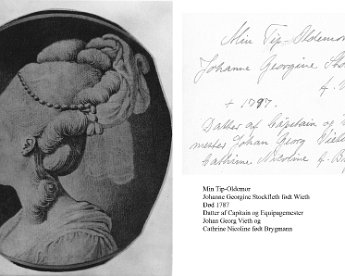 Min Tip-Oldemor
Johanne Georgine Sto
f.
+ 1797.
Datter af Captain og
mester Johan Georg Vieth
Cathrine Nicoline f. Br
Min Tip-Oldemor
Johanne Georgine Stockfleth født Wieth
Død 1787
Datter af Captain og Equipagemester
Johan Georg Vieth og
Cathrine Nicoline født Brygmann